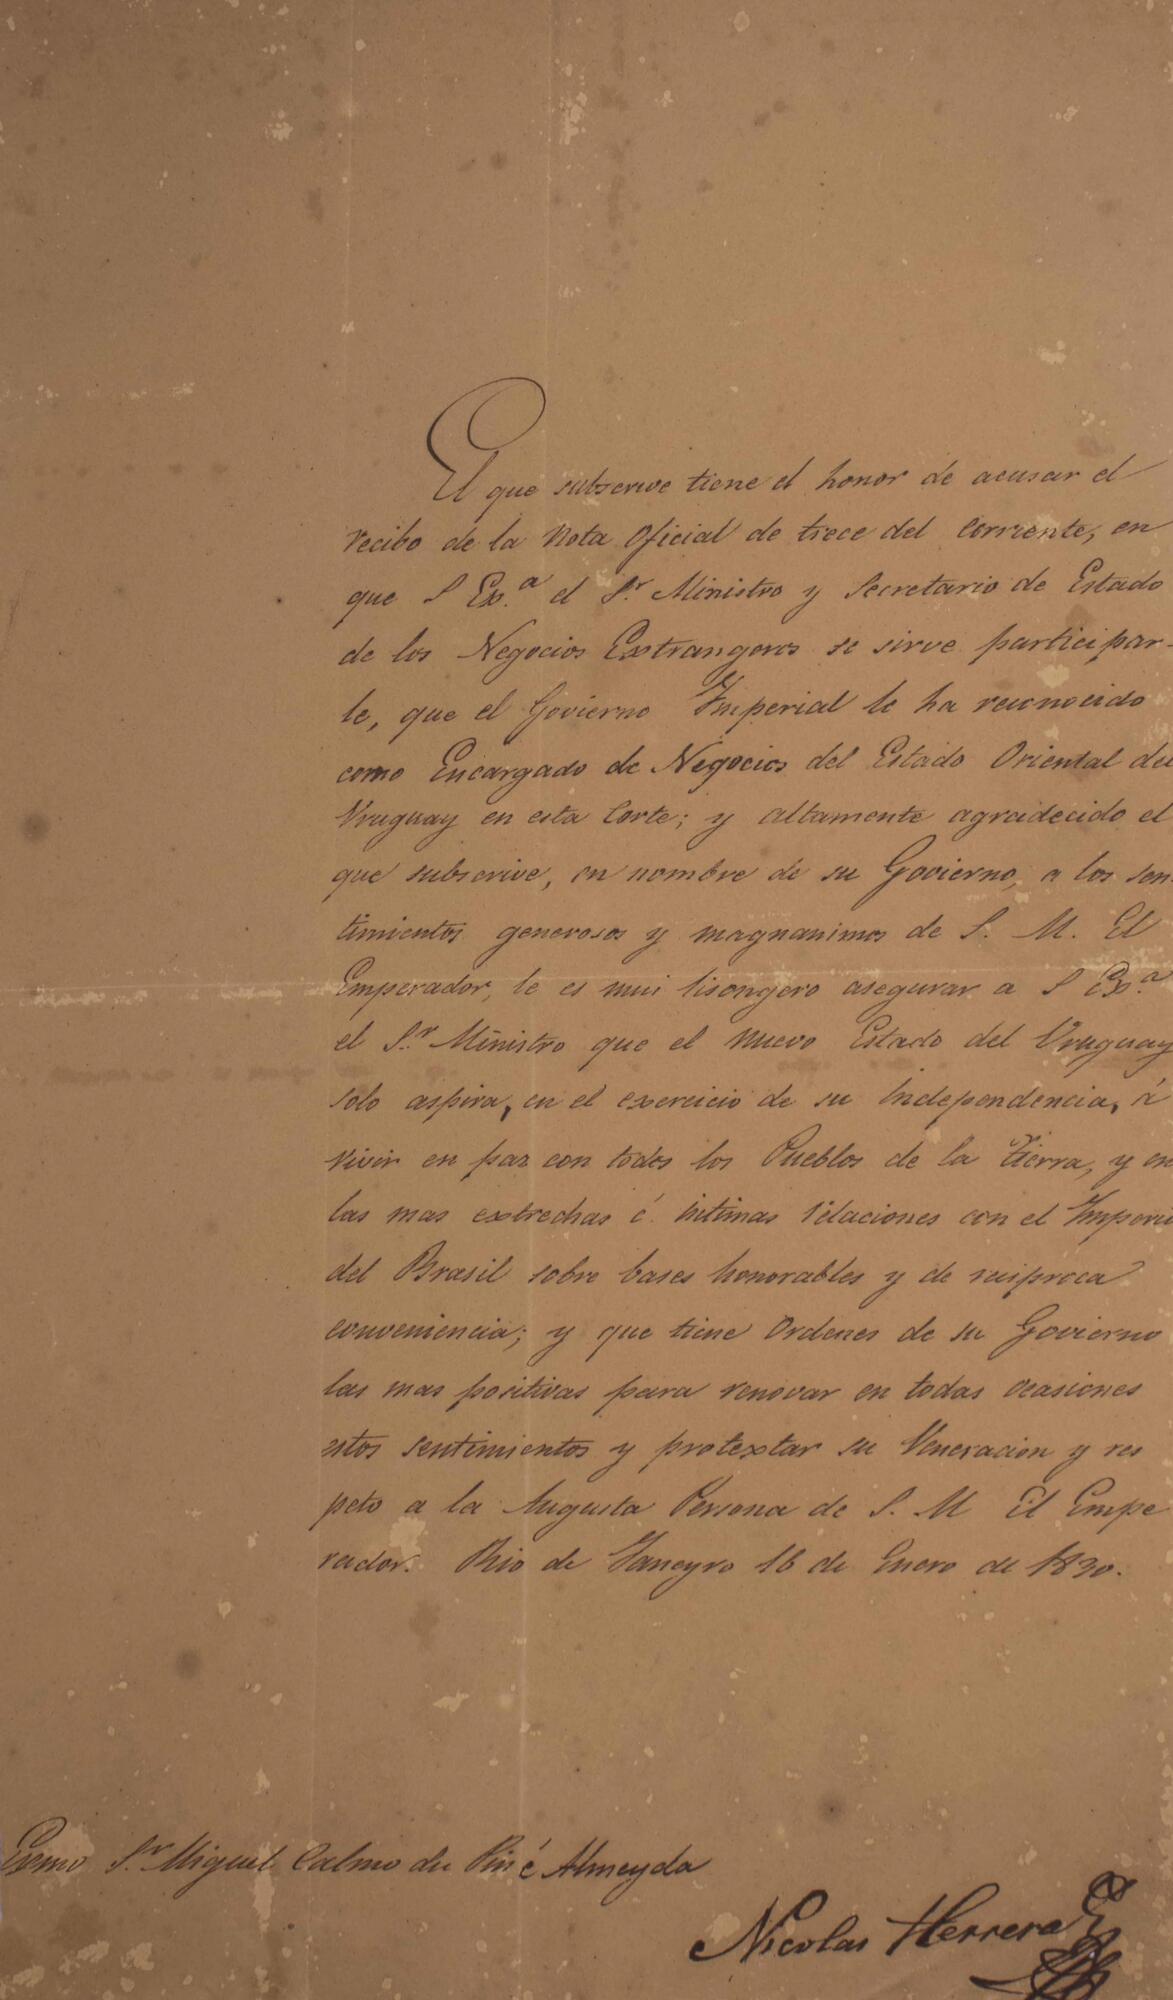 El que subscrive tiene el honor de acusar el
recibo de la Nota Oficial de trece del corriente, en
que S Ex.ª el S.r Ministro y Secretario de Estado
de los Negocios Extrangeros se sirve participar-
le, que el Govierno Imperial le ha reconocido
como Encargado de Negocios del Estado Oriental del
Uruguay en esta Corte; y altamente agradecido el
que subscrive, en nombre de su Govierno, a los sen-
timientos generosos y magnanimos de S. M. El
Emperador, le es mui lisongero asegurar a S Ex.ª
el S.r Ministro que el nuevo Estado del Uruguay
solo aspira, en el exercicio de su Independencia, á
vivir en paz con todos los Pueblos de la Tierra, y en
las mas extrechas é intimas relaciones con el Imperio
del Brasil sobre bases honorables y de reciproca
conveniencia; y que tiene Ordenes de su Govierno
las mas positivas para renovar en todas ocasiones
estos sentimientos y protextar su Veneracion y res
peto a la Augusta Persona de S. M El Empe
rador. Rio de Janeyro 16 de Enero de 1830.
Exmo S.r Miguel Calmo du Pin é Almeyda
Nicolas Herrera